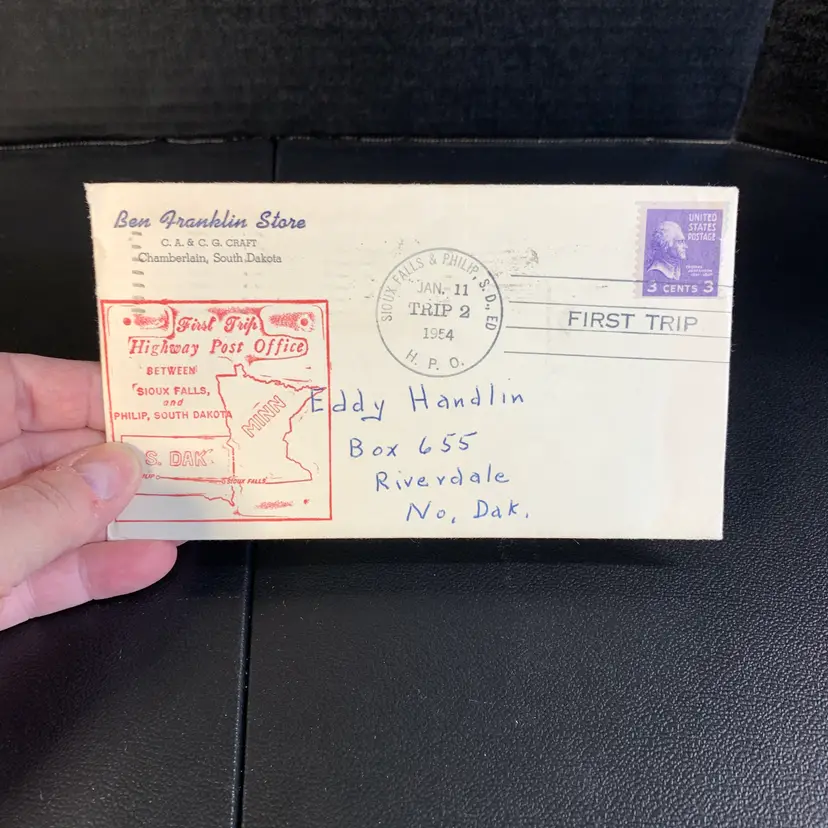 Ben Franklin Store
C. A. & C. G. CRAFT
Chamberlain, South Dakota
UNITED
STATES
POSTAGE
3 CENTS 3
SIOUX FALLS & PHILIP, S. D., ED
JAN. 11
TRIP 2
1954
H. P. O.
FIRST TRIP
First Trip
Highway Post Office
BETWEEN
SIOUX FALLS,
and
PHILIP, SOUTH DAKOTA
MINN
S. DAK
SIOUX FALLS
Eddy Handlin
Box 655
Riverdale
No. Dak.